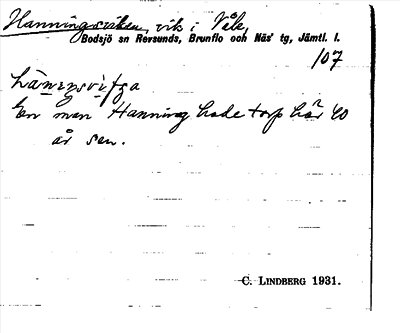 Hanningsviken, vik i Vële,
Bodsjö sn Revsunds, Brunflo och Näs' tg, Jämtl. l.
107
En man Hanning hade torp här 40
år sen.
C. LINDBERG 1931.